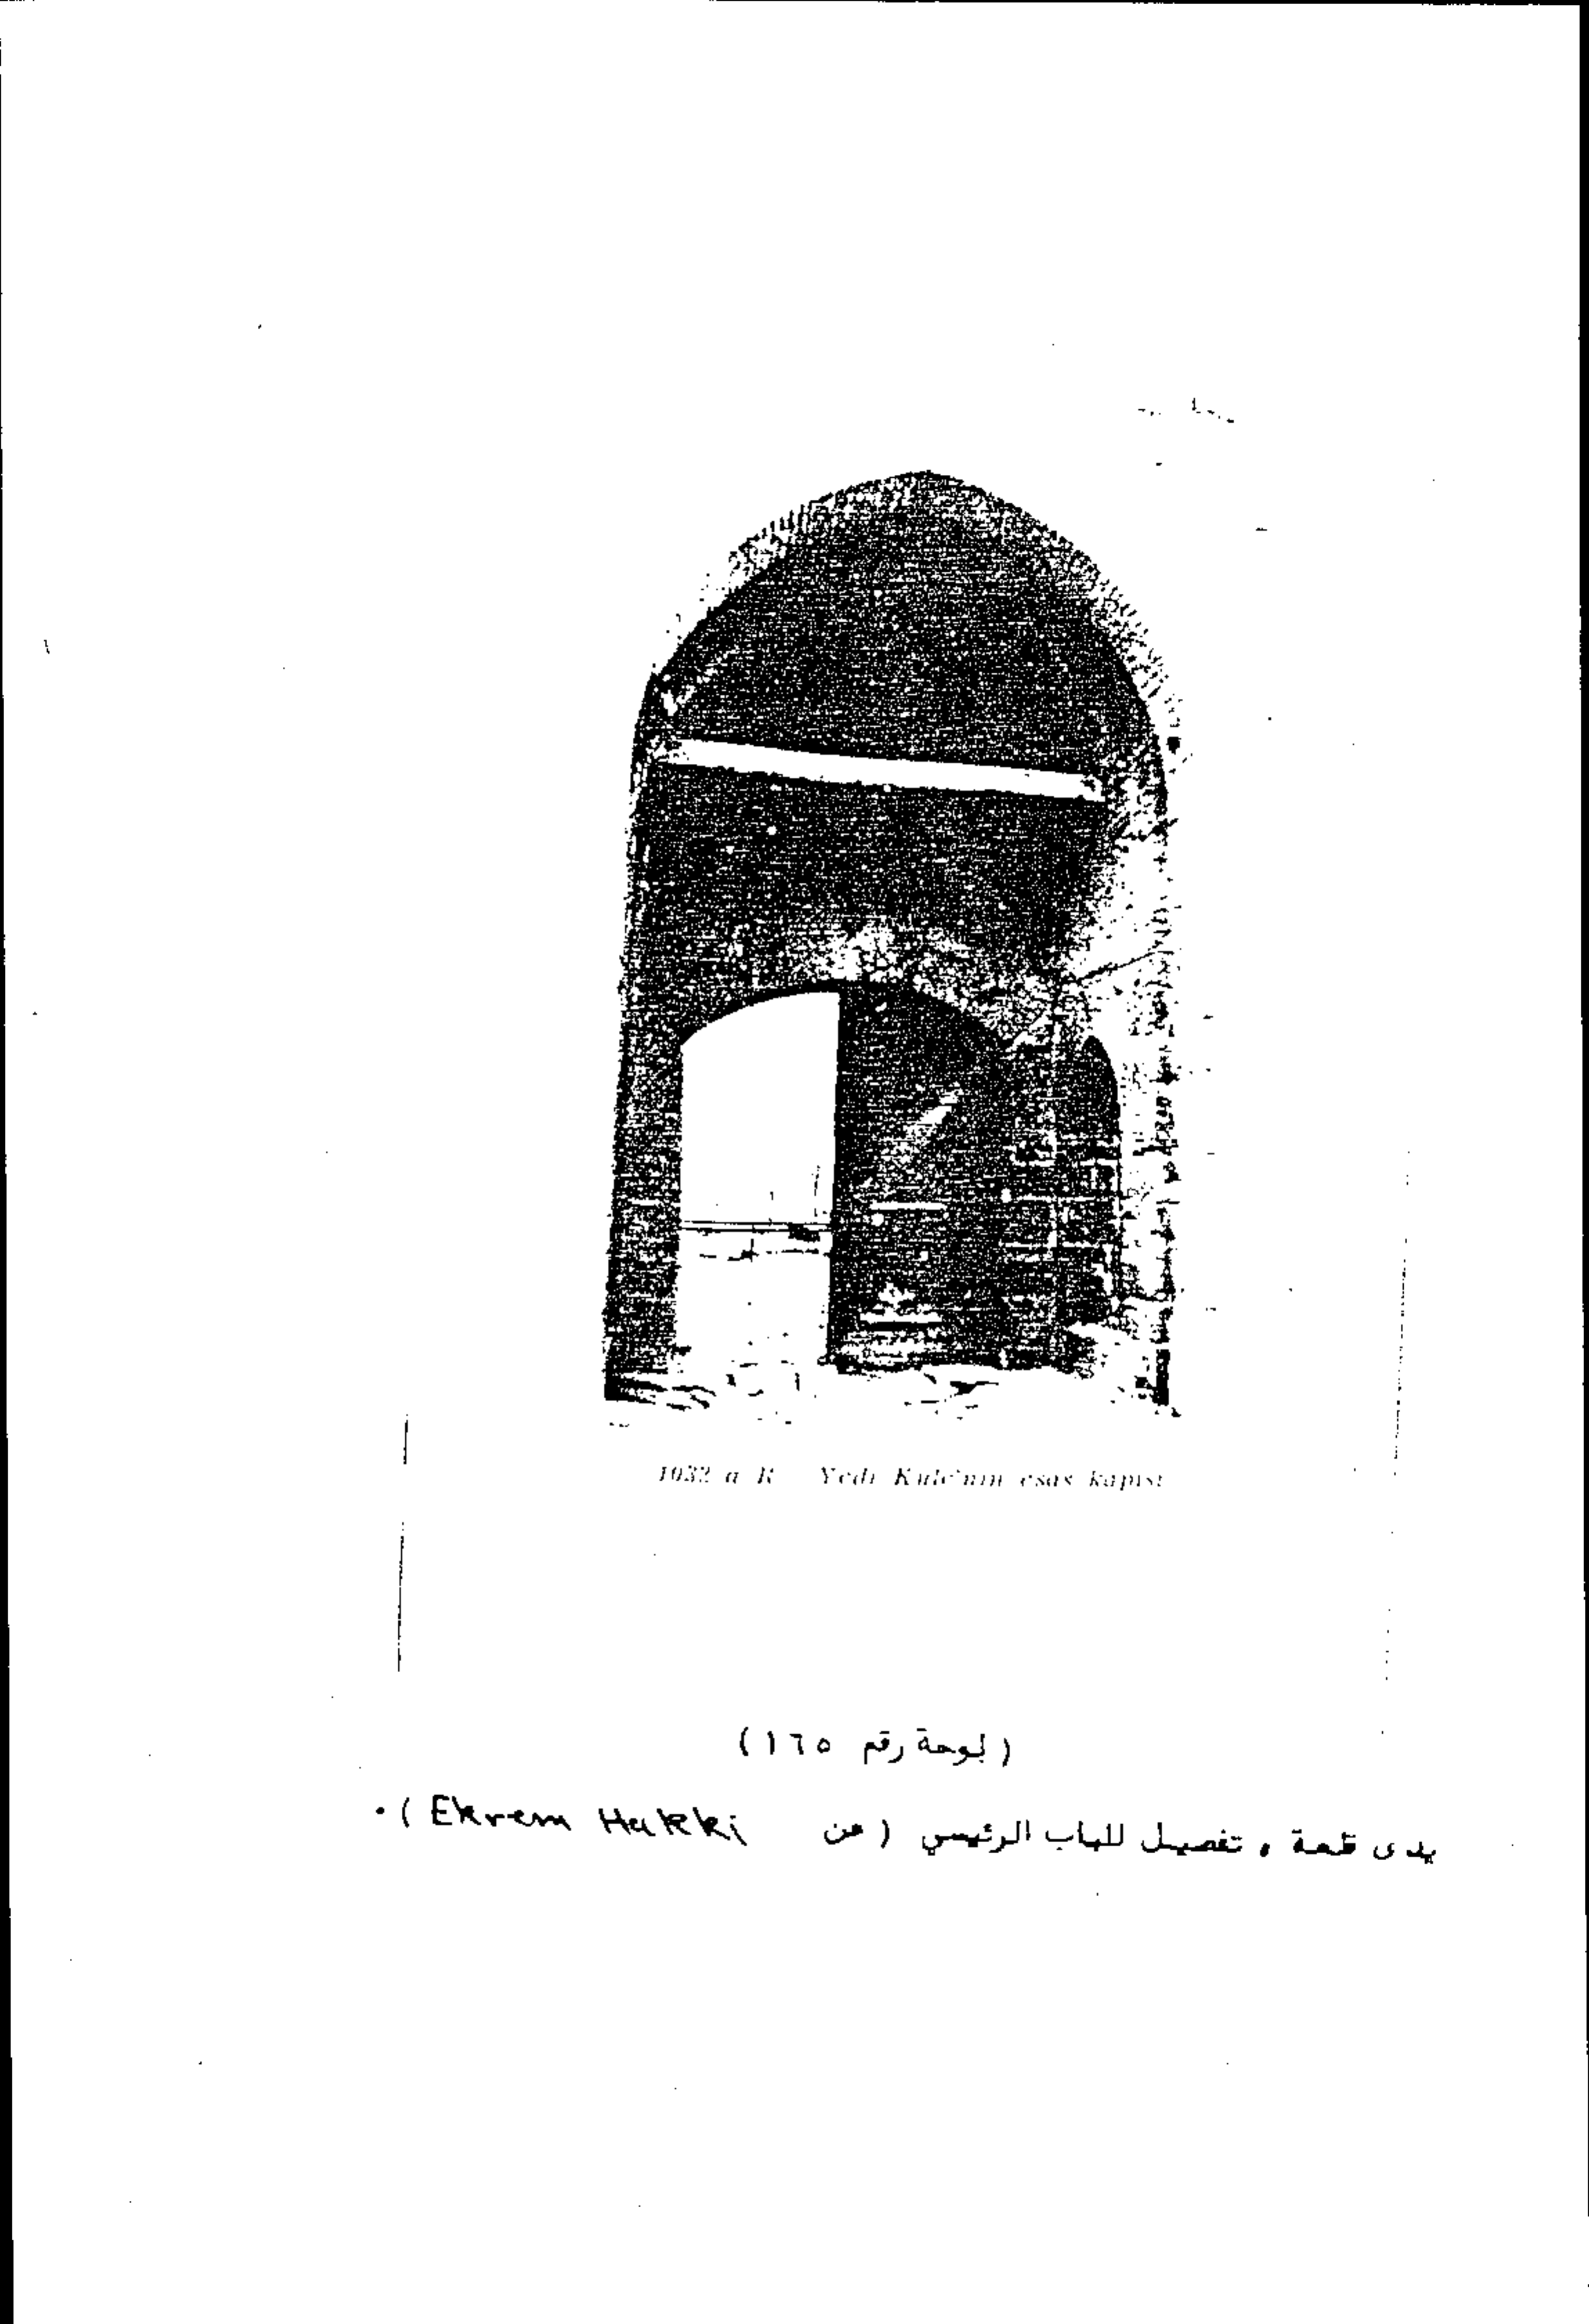 1032 a R Yedi Kule'nin esas kapısı
(لوحة رقم ١٦٥)
يدى قلعة ، تفصيل للباب الرئيسي (عن Ekrem Hakki).